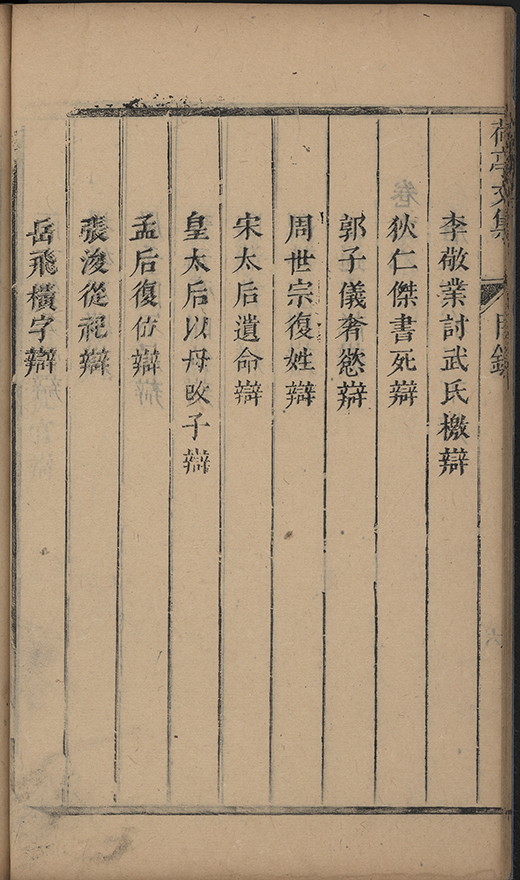 荷亭文集
目錄
李敬業討武氏檄辯
狄仁傑書死辯
郭子儀奢慾辯
周世宗復姓辯
宋太后遺命辯
皇太后以母改子辯
孟后復位辯
張浚從祀辯
岳飛橫字辯